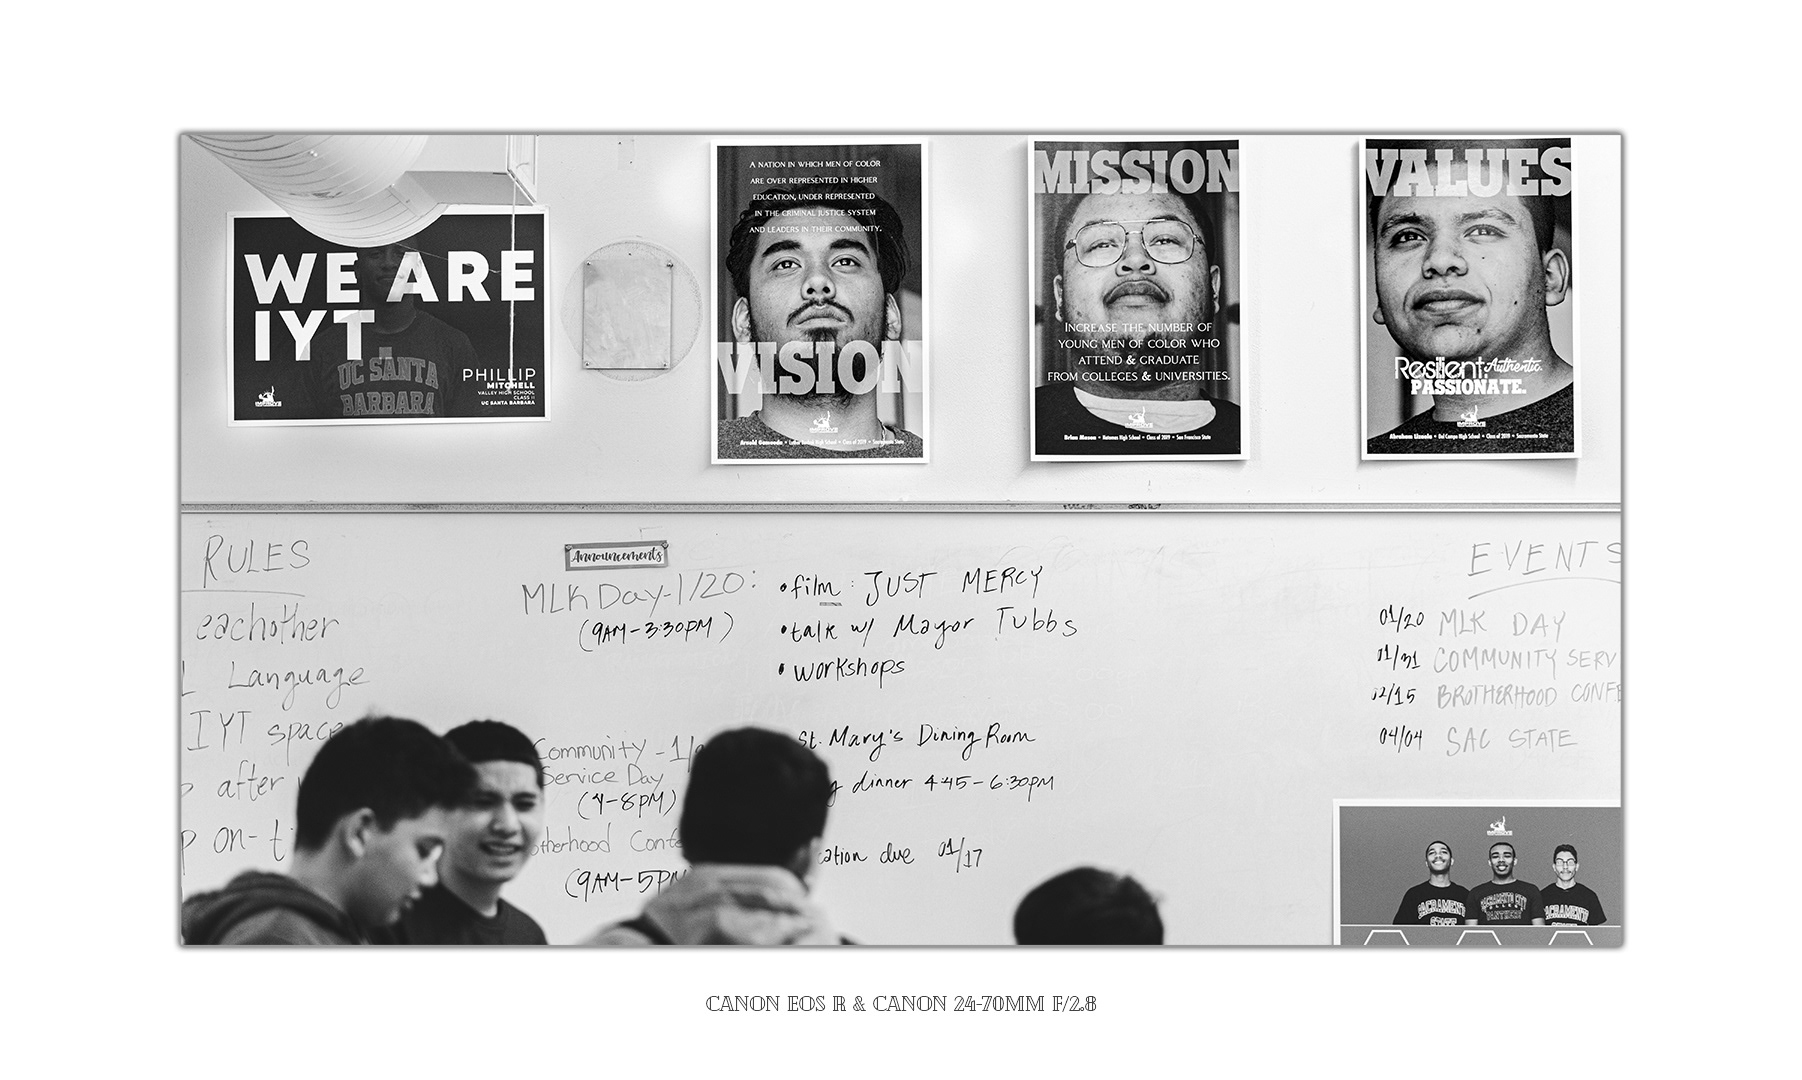 WE ARE
IYT
UC SANTA
BARBARA
PHILLIP
MITCHELL
VALLEY HIGH SCHOOL
CLASS II
UC SANTA BARBARA
IMPROVE
A NATION IN WHICH MEN OF COLOR
ARE OVER REPRESENTED IN HIGHER
EDUCATION, UNDER REPRESENTED
IN THE CRIMINAL JUSTICE SYSTEM
AND LEADERS IN THEIR COMMUNITY.
VISION
IMPROVE
High School • Class of 2019 • Sacramento State
MISSION
INCREASE THE NUMBER OF
YOUNG MEN OF COLOR WHO
ATTEND & GRADUATE
FROM COLLEGES & UNIVERSITIES.
IMPROVE
Brian Mason • Natomas High School • Class of 2019 • San Francisco State
VALUES
Resilient. Authentic.
PASSIONATE.
IMPROVE
Abraham • Del Campo High School • Class of 2019 • Sacramento State
RULES
eachother
L Language
IYT space
after
on-t
Announcements
MLK Day-1/20:
(9AM-3:30PM)
• film: JUST MERCY
• talk w/ Mayor Tubbs
• workshops
Community - 1/
Service Day
(4-8PM)
St. Mary's Dining Room
dinner 4:45-6:30PM
otherhood Confe
(9AM-5PM
cation due 01/17
EVENTS
01/20 MLK DAY
01/31 COMMUNITY SERV
02/15 BROTHERHOOD CONFE
04/04 SAC STATE
IMPROVE
SACRAMENTO
STATE
SACRAMENTO CITY
COLLEGE
PANTHERS
SACRAMENTO
CANON EOS R & CANON 24-70MM F/2.8